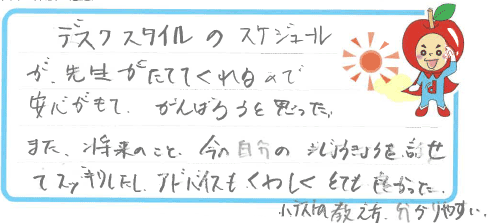 デスクスタイルのスケジュール
が、先生がたててくれるので
安心がもて、がんばろうと思った。
また、将来のこと、今の自分の状況を話せ
てスッキリしたし、アドバイスもくわしくとても良かった。
小テストの教え方、分かりやすい。